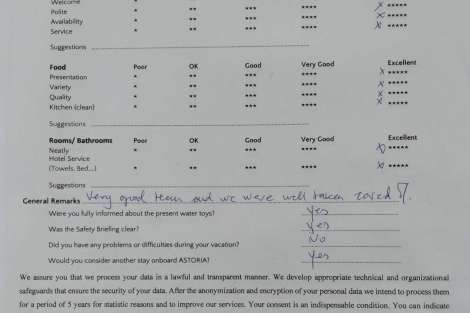 Welcome * ** *** **** X *****
Polite * ** *** **** X *****
Availability * ** *** **** X *****
Service * ** *** **** X *****
Suggestions
Food Poor OK Good Very Good Excellent
Presentation * ** *** **** X *****
Variety * ** *** **** X *****
Quality * ** *** **** X *****
Kitchen (clean) * ** *** **** X *****
Suggestions
Rooms/ Bathrooms Poor OK Good Very Good Excellent
Neatly * ** *** **** X *****
Hotel Service
(Towels, Bed...) * ** *** **** X *****
Suggestions
General Remarks Very good team and we were well taken
Were you fully informed about the present water toys? Yes
Was the Safety Briefing clear? Yes
Did you have any problems or difficulties during your vacation? No
Would you consider another stay onboard ASTORIA? Yes
We assure you that we process your data in a lawful and transparent manner. We develop appropriate technical and organizational
safeguards that ensure the security of your data. After the anonymization and encryption of your personal data we intend to process them
for a period of 5 years for statistic reasons and to improve our services. Your consent is an indispensable condition. You can indicate